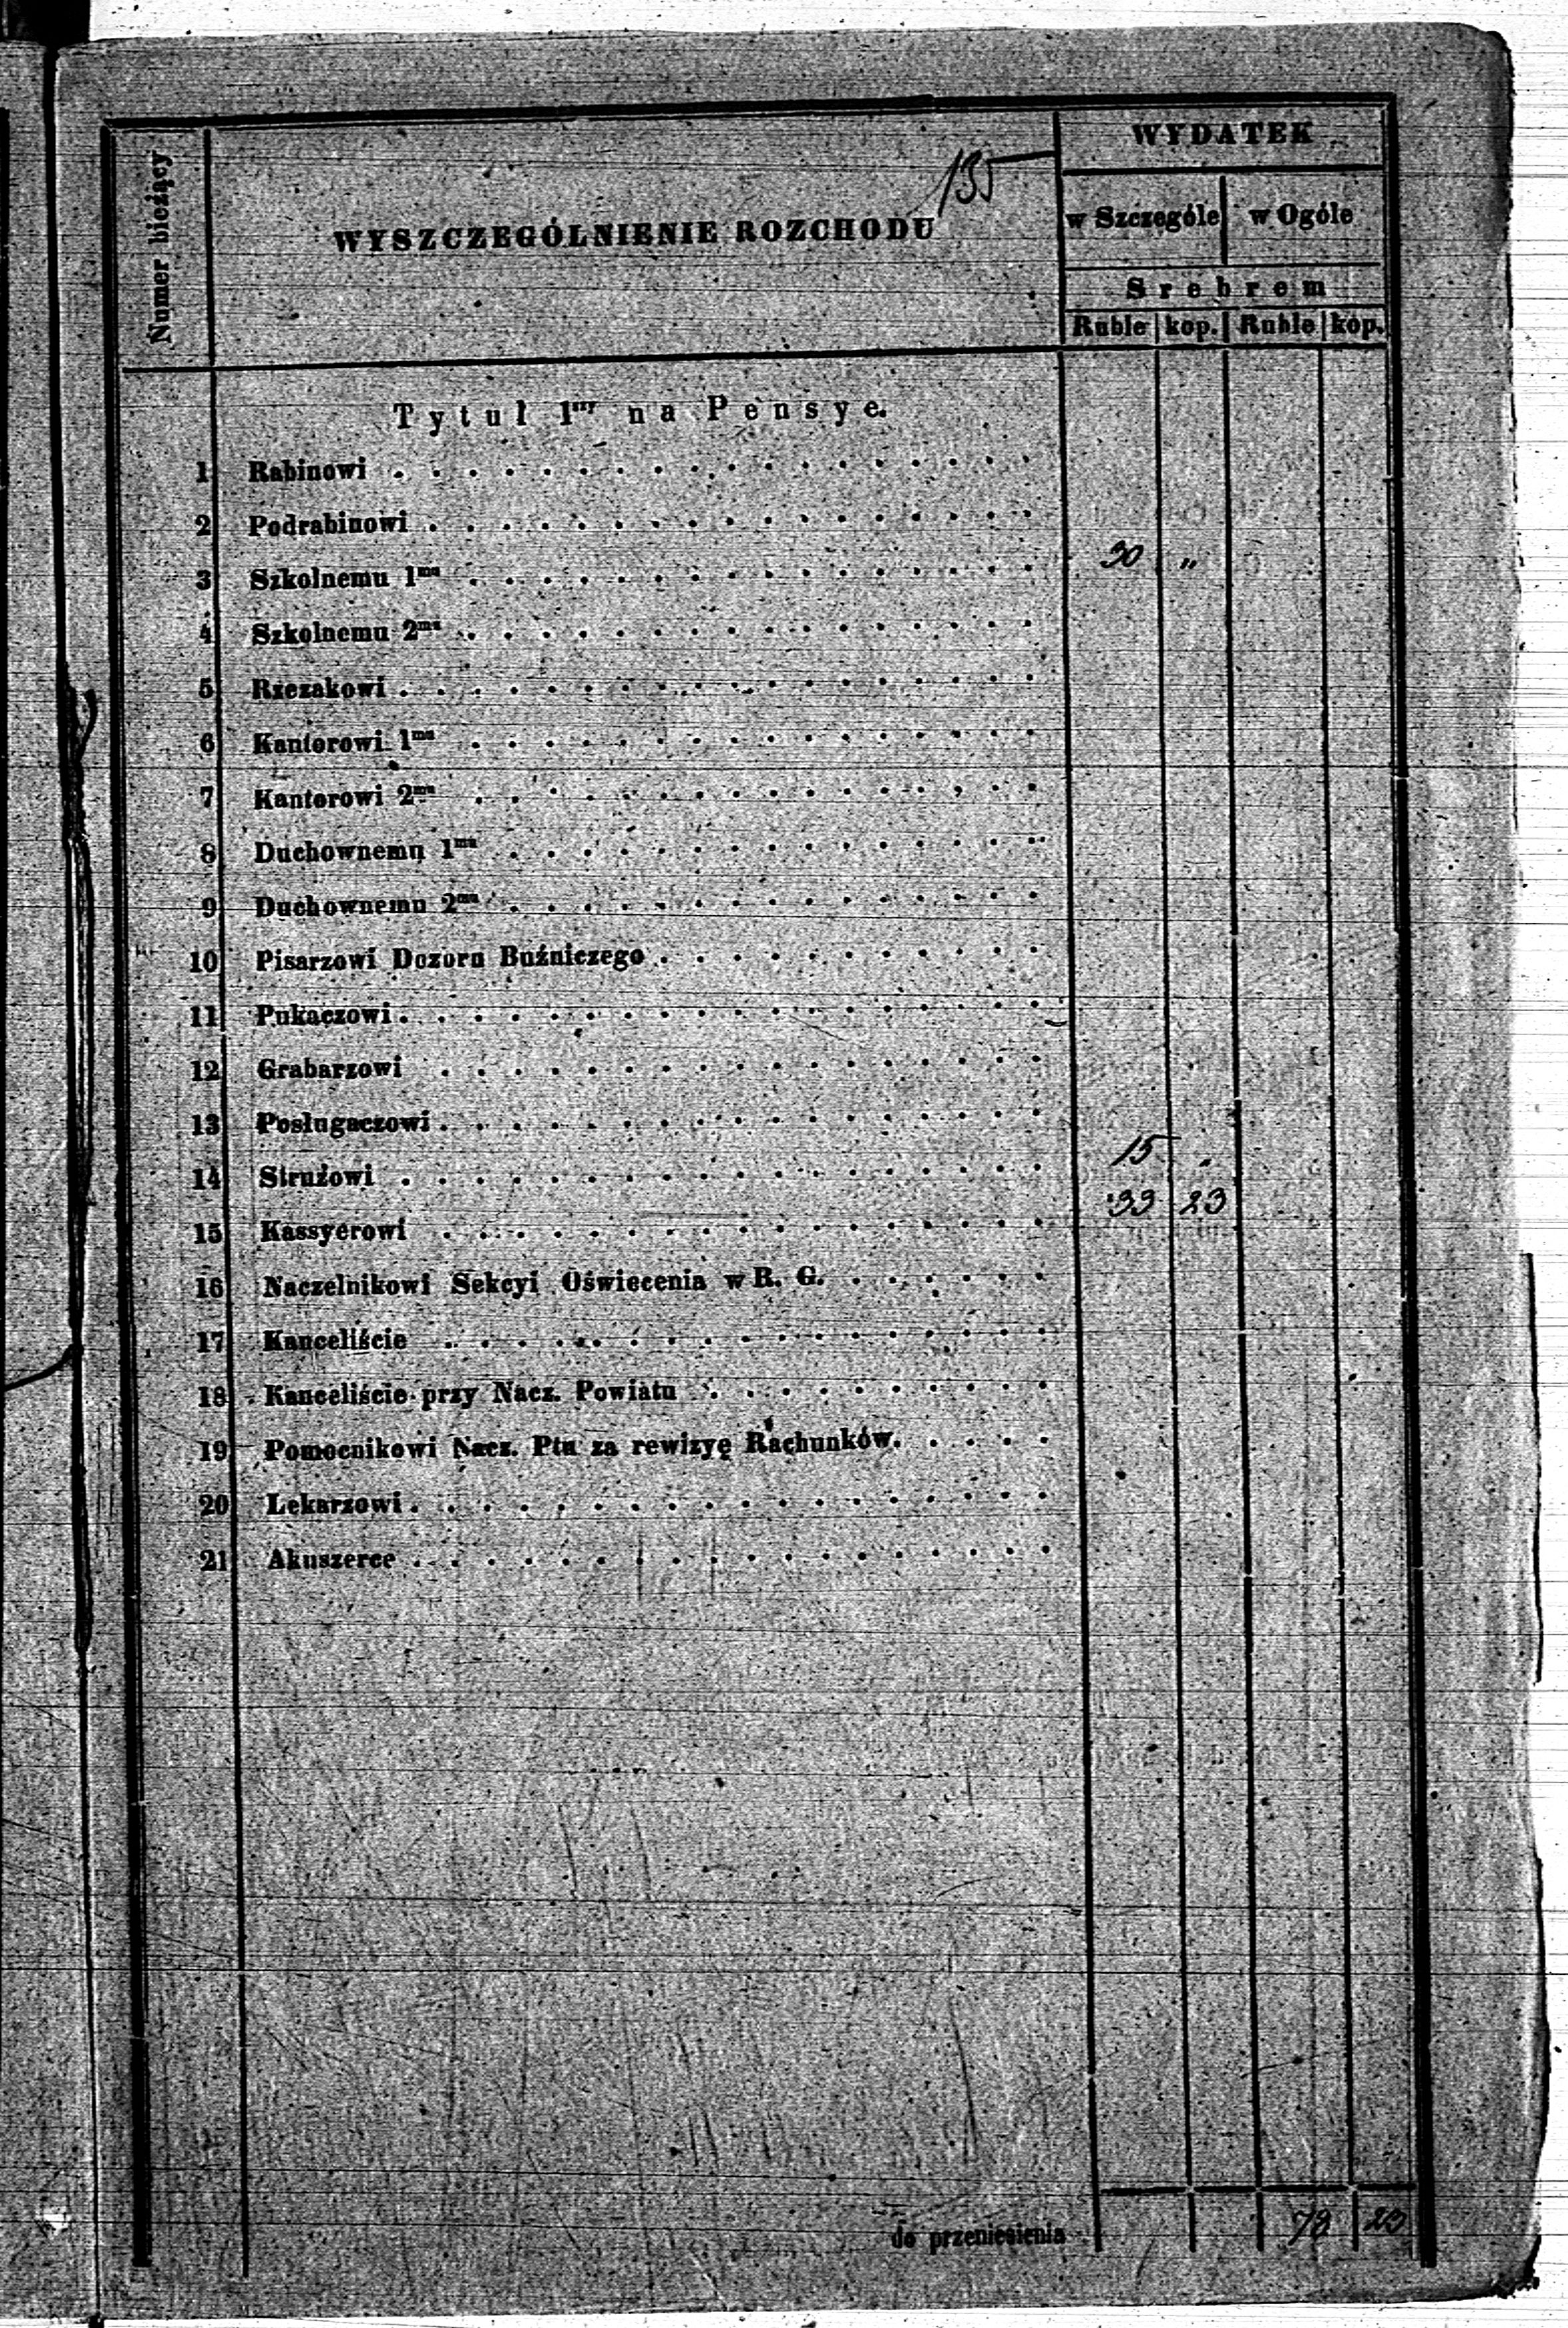 135
Numer bieżący
WYSZCZEGÓLNIENIE ROZCHODU
WYDATEK
w Szczególe w Ogóle
Srebrem
Ruble kop. Ruble kop.
Tytuł 1ny na Pensye.
1 Rabinowi
2 Podrabinowi
3 Szkolnemu 1mu 30 „
4 Szkolnemu 2mu
5 Rzezakowi
6 Kantorowi 1mu
7 Kantorowi 2mu
8 Duchownemu 1mu
9 Duchownemu 2mu
10 Pisarzowi Dozoru Buźniczego
11 Pukaczowi
12 Grabarzowi
13 Posługaczowi
14 Strużowi 15 „
15 Kassyerowi 33 23
16 Naczelnikowi Sekcyi Oświecenia w R. G.
17 Kanceliście
18 Kanceliście przy Nacz. Powiatu
19 Pomocnikowi Nacz. Ptu za rewizyę Rachunków.
20 Lekarzowi
21 Akuszerce
do przeniesienia 78 23